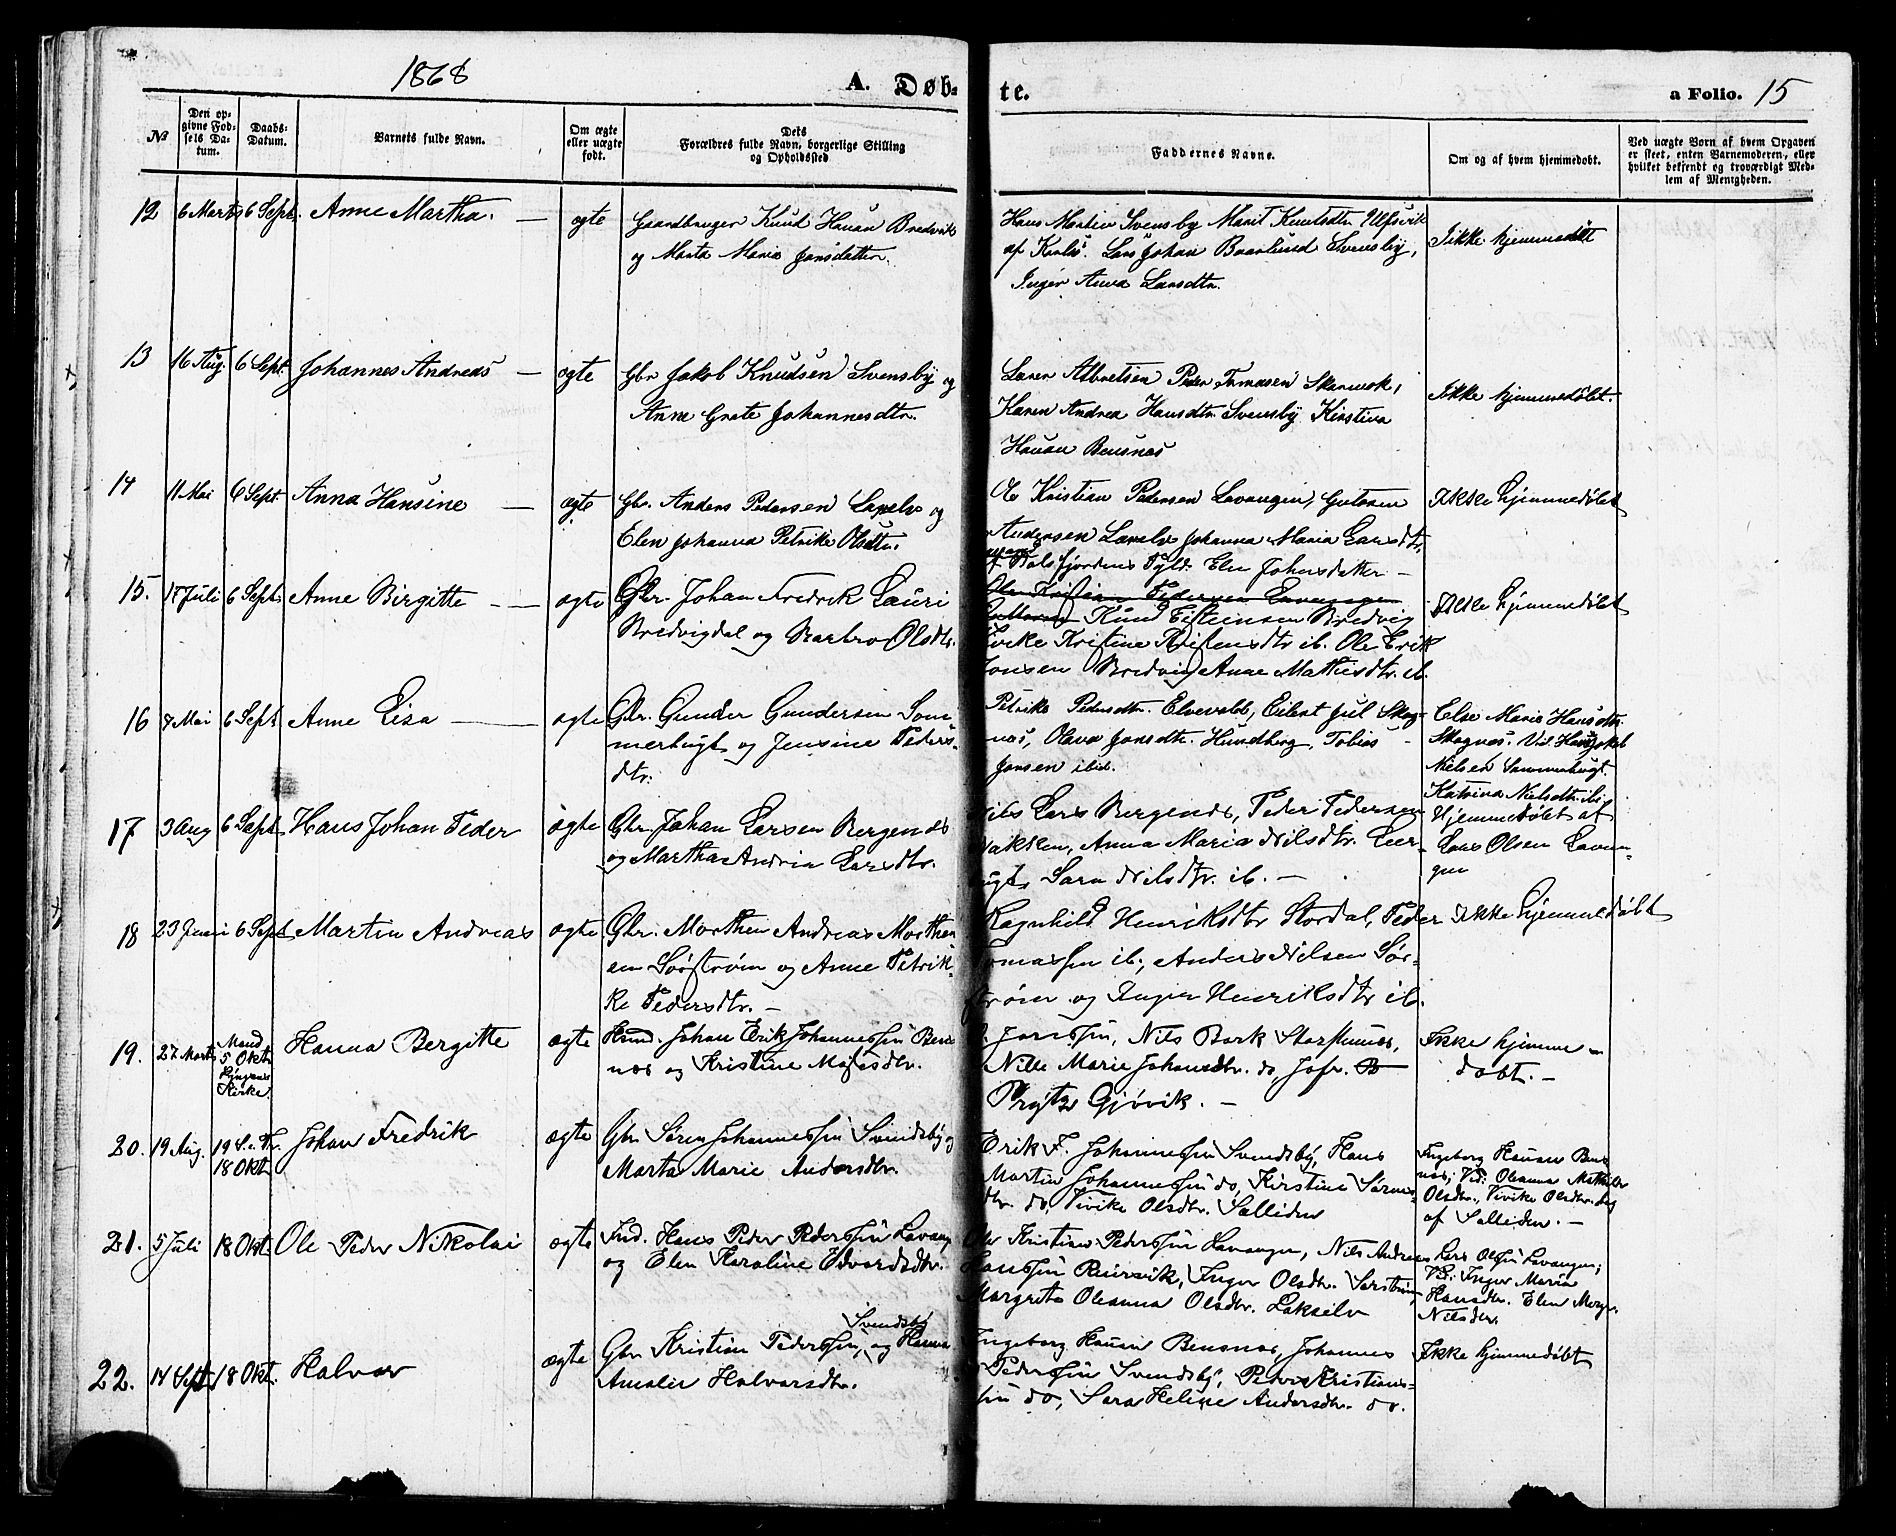 1868
A. Døb-
te.
a Folio. 15
№
Den op-
givne Fød-
sels Da-
tum.
Daabs-
Datum.
Barnets fulde Navn.
Om ægte
eller uægte
født.
Dets
Forældres fulde Navn, borgerlige Stilling
og Opholdssted
Faddernes Navne.
Om og af hvem hjemmedøbt.
Ved uægte Børn af hvem Opgaven
er skeet, enten Barnemoderen, eller
hvilket bekjendt og troværdigt Med-
lem af Menigheden.
12 6 Marts 6 Sept. Anne Martha. — ægte
Gaardbruger Knud Hauan Bredvik
og Marta Maria Jansdatter.
Hans Martin Svensby Marit Knutsdtr. Ulfsvik
af Karlsö. Lars Johan Baarlund Svensby,
Inger Anna Larsdtr.
Ikke hjemmedöbt
13 16 Aug. 6 Sept. Johannes Andreas — ægte
Gbr Jakob Knudsen Svensby og
Anne Grete Johannesdtr.
Lærer Albretsen Peder Tomasen
Karen Andrea Hansdtr. Svensby Kirstina
Hauan Bensnæs
Ikke hjemmedöbt.
14 11 Mai 6 Sept Anna Hansine — ægte
Gbr. Anders Pedersen Laxelv og
Elen Johanna Petrike Olsdtr.
Ole Kristian Pedersen Lavangen,
Andersen Laxelv Johanna Maria Larsdtr.
Balsfjordens Elen Johnsdatter —
Ikke hjemmedöbt
15. 17 Juli 6 Sept. Anne Birgitte — — ægte
Gbr. Johan Fredrik Lauri
Bredvigdal og Barbro Olsdtr.
Ole Kristian Pedersen Lavangen
Knud Eisteinsen Bredvig
Kristine Kristensdtr ib. Ole Erik
Jonsen Bredvig Anne Mathisdtr. ib.
Ikke hjemmedöbt
16 7 Mai 6 Sept Anne Lisa — ægte
Gbr. Gunder Gundersen Som-
merbugt og Jensine Peders-
dtr.
Petrike Pedersdtr. Elvevold, Eilert Jul Skog-
næs, Olava Jansdtr. Hundberg, Tobias
Jansen ibid.
Else Maria Hansdtr.
Skognæs. Vid. Hans Jakob
Nielsen Sommerbugt.
Katrina Nielsdtr. ib.
17 3 Aug 6 Sept Hans Johan Peder ægte
Gbr. Johan Larsen Bergenes
og Martha Andrea Larsdtr.
Nils Lars Bergenes, Peder Pedersen
Nakken, Anna Maria Nilsdtr. Leer-
bugt, Sara Nilsdtr. ib. —
Hjemmedöbt af
Lars Olsen Lavan-
gen
18 23 Juni 6 Sept Martin Andreas ægte
Gbr. Morthen Andreas Morthen-
sen Sörström og Anne Petrik-
ke Pedersdtr. —
Ragnhild Henriksdtr Stordal, Peder
Tomassen ib., Anders Nilsen Sör-
ström og Inger Henriksdtr ib.
Ikke hjemmedöbt
19. 27 Marts
5 Oktr
Kirke.
Hanna Bergitte ægte
Johan Erik Johannessen Bens-
næs og Kristine Matisdtr.
Janssen, Nils Bark Storstennes,
Nille Marie Johansdtr. do, Jofr. B
Prytz Gjövik. —
Ikke hjemme-
döbt. —
20. 19 Aug. 19 S. e. Tr.
18 Okt
Johan Fredrik ægte
Gbr Sören Johannessen Svendsby og
Marta Marie Andersdtr.
Erik F. Johannessen Svendsby, Hans
Martin Johannessen do, Kirstine Sörens-
dtr. do, Vivike Olsdtr. Sælliden
Ingeborg Hauan Bens-
næs; Vid: Oleanna Mathilde
Olsdtr., Vivike Olsdtr.
af Sælliden. —
21. 5 Juli 18 Okt Ole Peder Nikolai ægte
Ind. Hans Peder Pederssen Lavang
og Elen Karoline Edvardsdtr.
Ole Kristian Pederssen Lavangen, Nils Andreas
Hanssen Inger Olsdtr. Sörström,
Margrete Oleanna Olsdtr. Lakselv
Lars Olssen Lavangen;
Vid: Inger Maria
Hansdtr. Elen Margr.
Nilsdtr.
22. 14 Sept. 18 Okt. Halvor ægte
Svendsby
Gbr Kristian Pederssen, og Hanna
Amalie Halvorsdtr.
Ingeborg Hauan Bensnæs, Johannes
Pederssen Svendsby, Peder Kristians-
sen do, Sara Heline Andersdtr. do.
Ikke hjemmedöbt